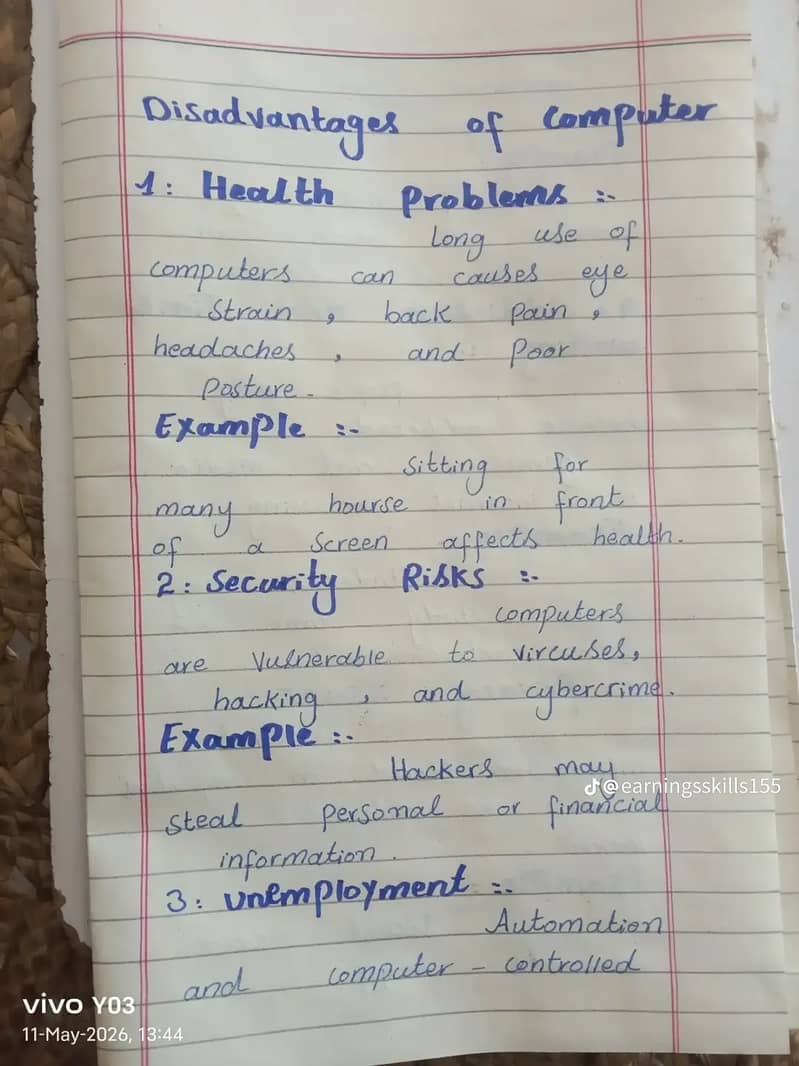 Disadvantages of Computer
1: Health Problems :-
Long use of
computers can causes eye
Strain, back Pain,
headaches, and Poor
Posture.
Example :-
Sitting for
many hourse in front
of a Screen affects health.
2: Security Risks :-
computers
are Vulnerable to vircuses,
hacking, and cybercrime.
Example :-
Hackers may
@earningsskills155
steal personal or financial
information.
3: Unemployment :-
Automation
and computer - controlled
vivo Y03
11-May-2026, 13:44